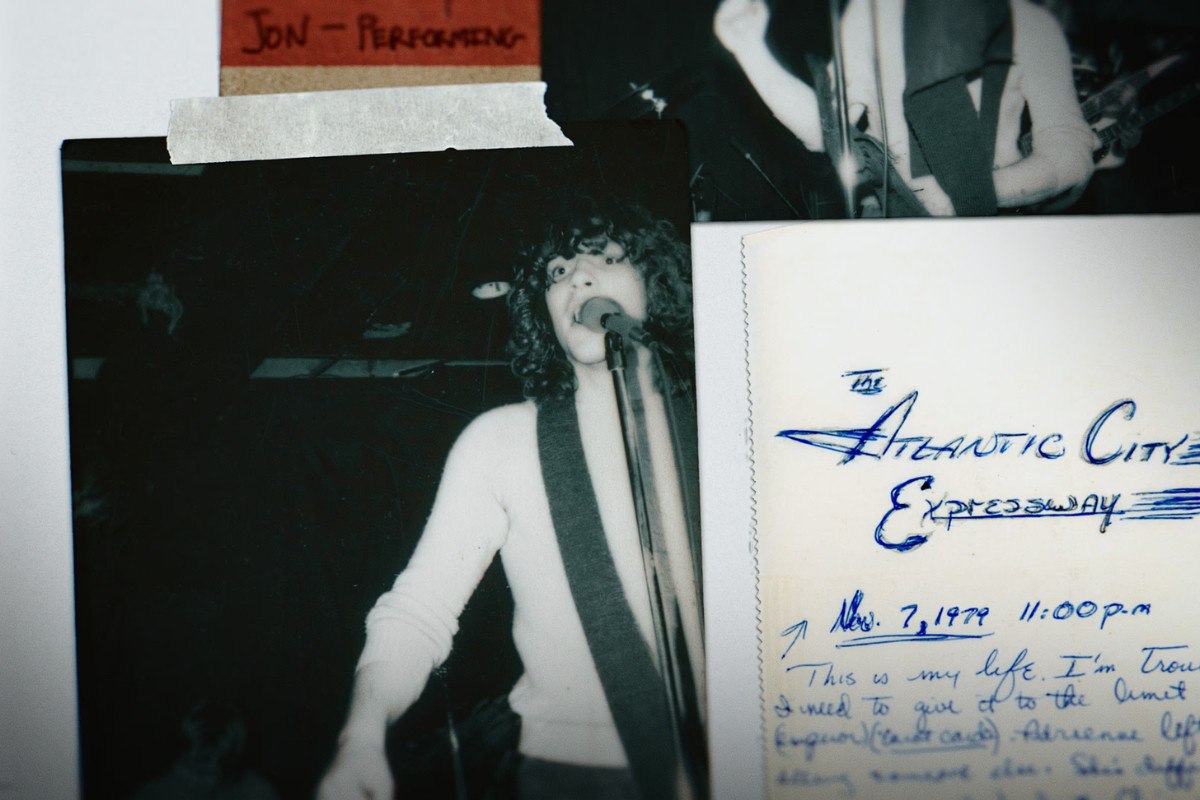 JON - PERFORMING
The
ATLANTIC CITY
EXPRESSWAY
Nov. 7, 1979 11:00 p.m
This is my life. I'm Trou
I need to give it to the limit
Emperor) (tarot card). Adrienne left
someone else. She's